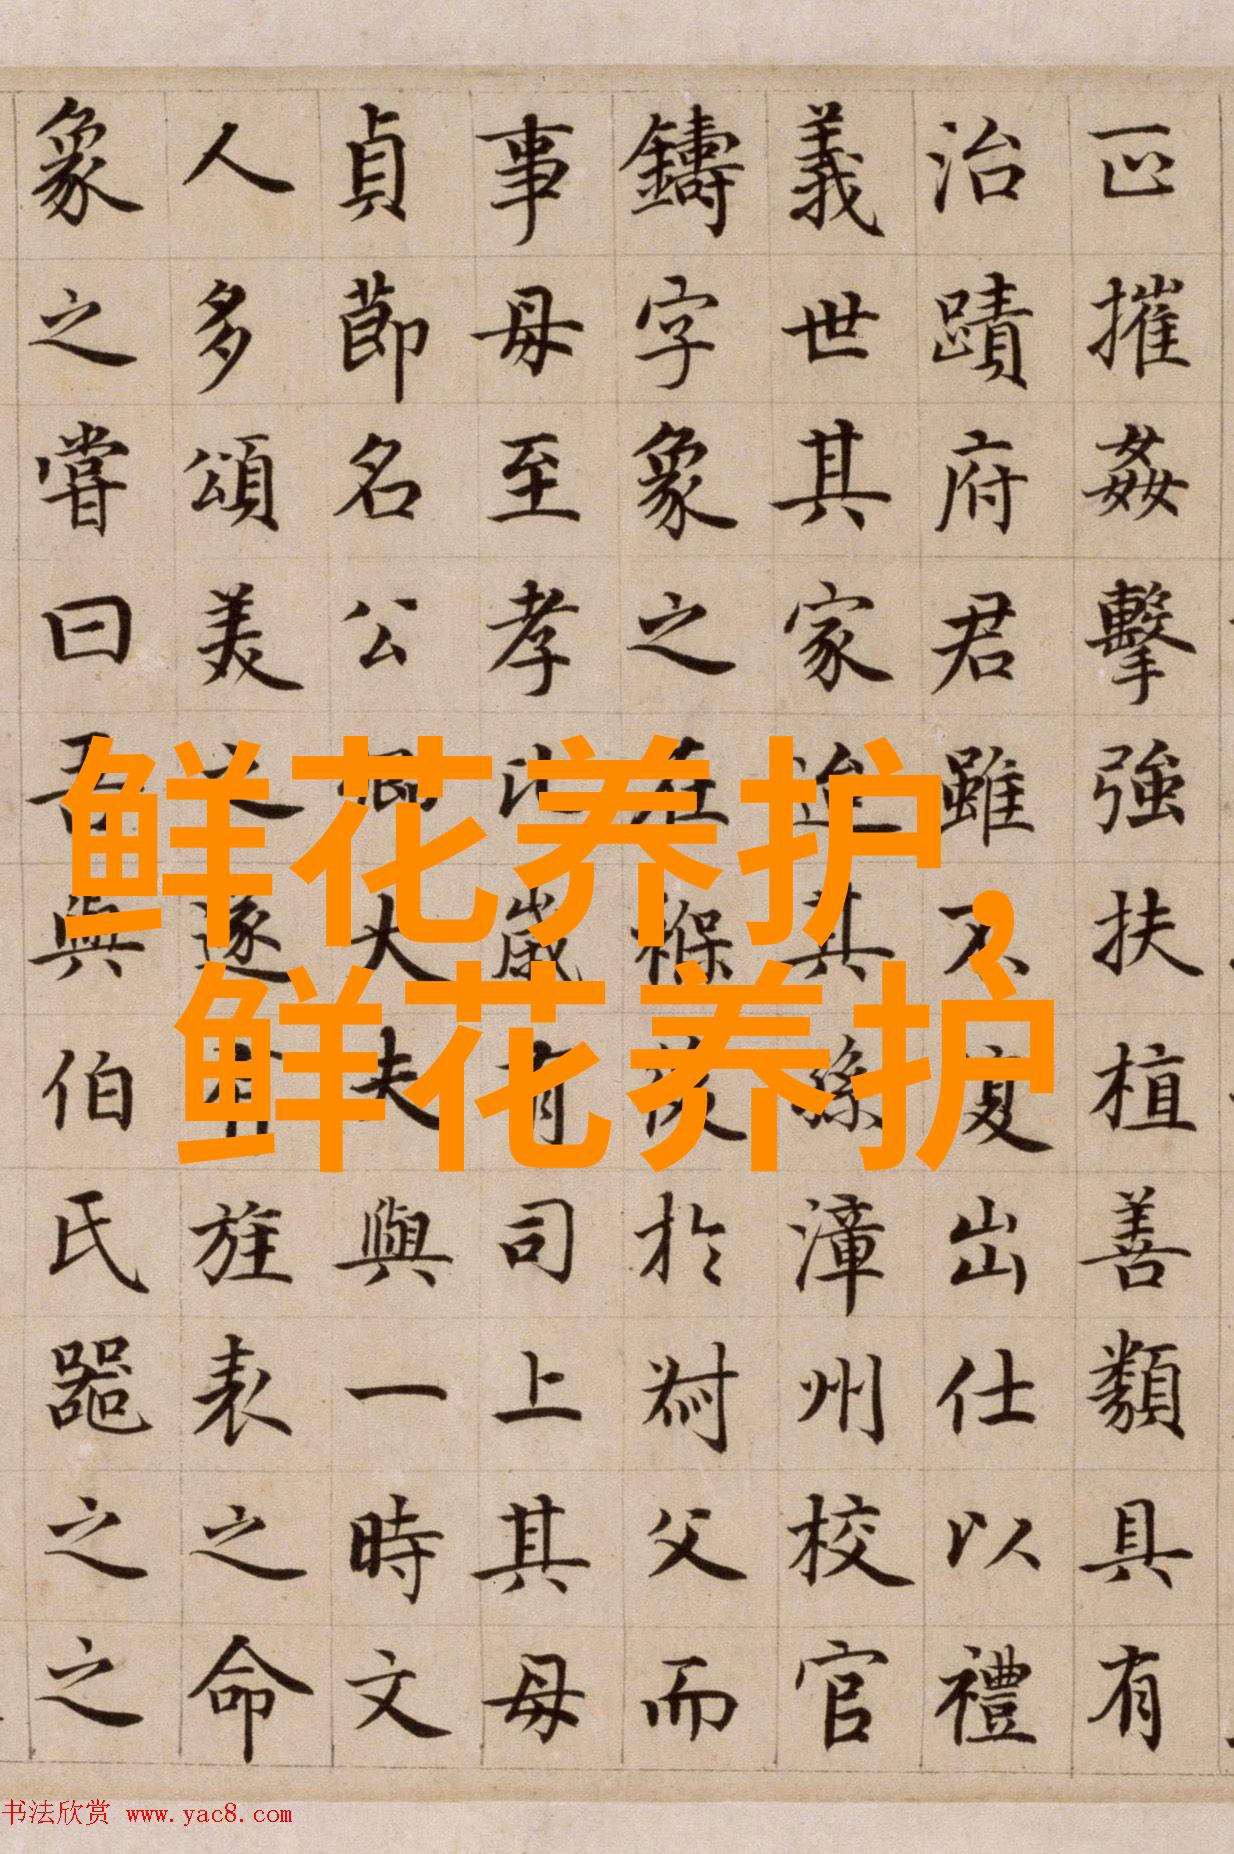 摧姦擊強扶植善類具有
治蹟府君雖不復出仕以禮
義世其家其孫漳州校官
鑄字象之在褓於父而
事母至孝比歲有司上其母
貞節名公卿大夫與一時文
人多頌美之遂有旌表之命
象之嘗曰吾與伯氏器之之
鲜花养护，
鲜花养护
书法欣赏 www.yac8.com